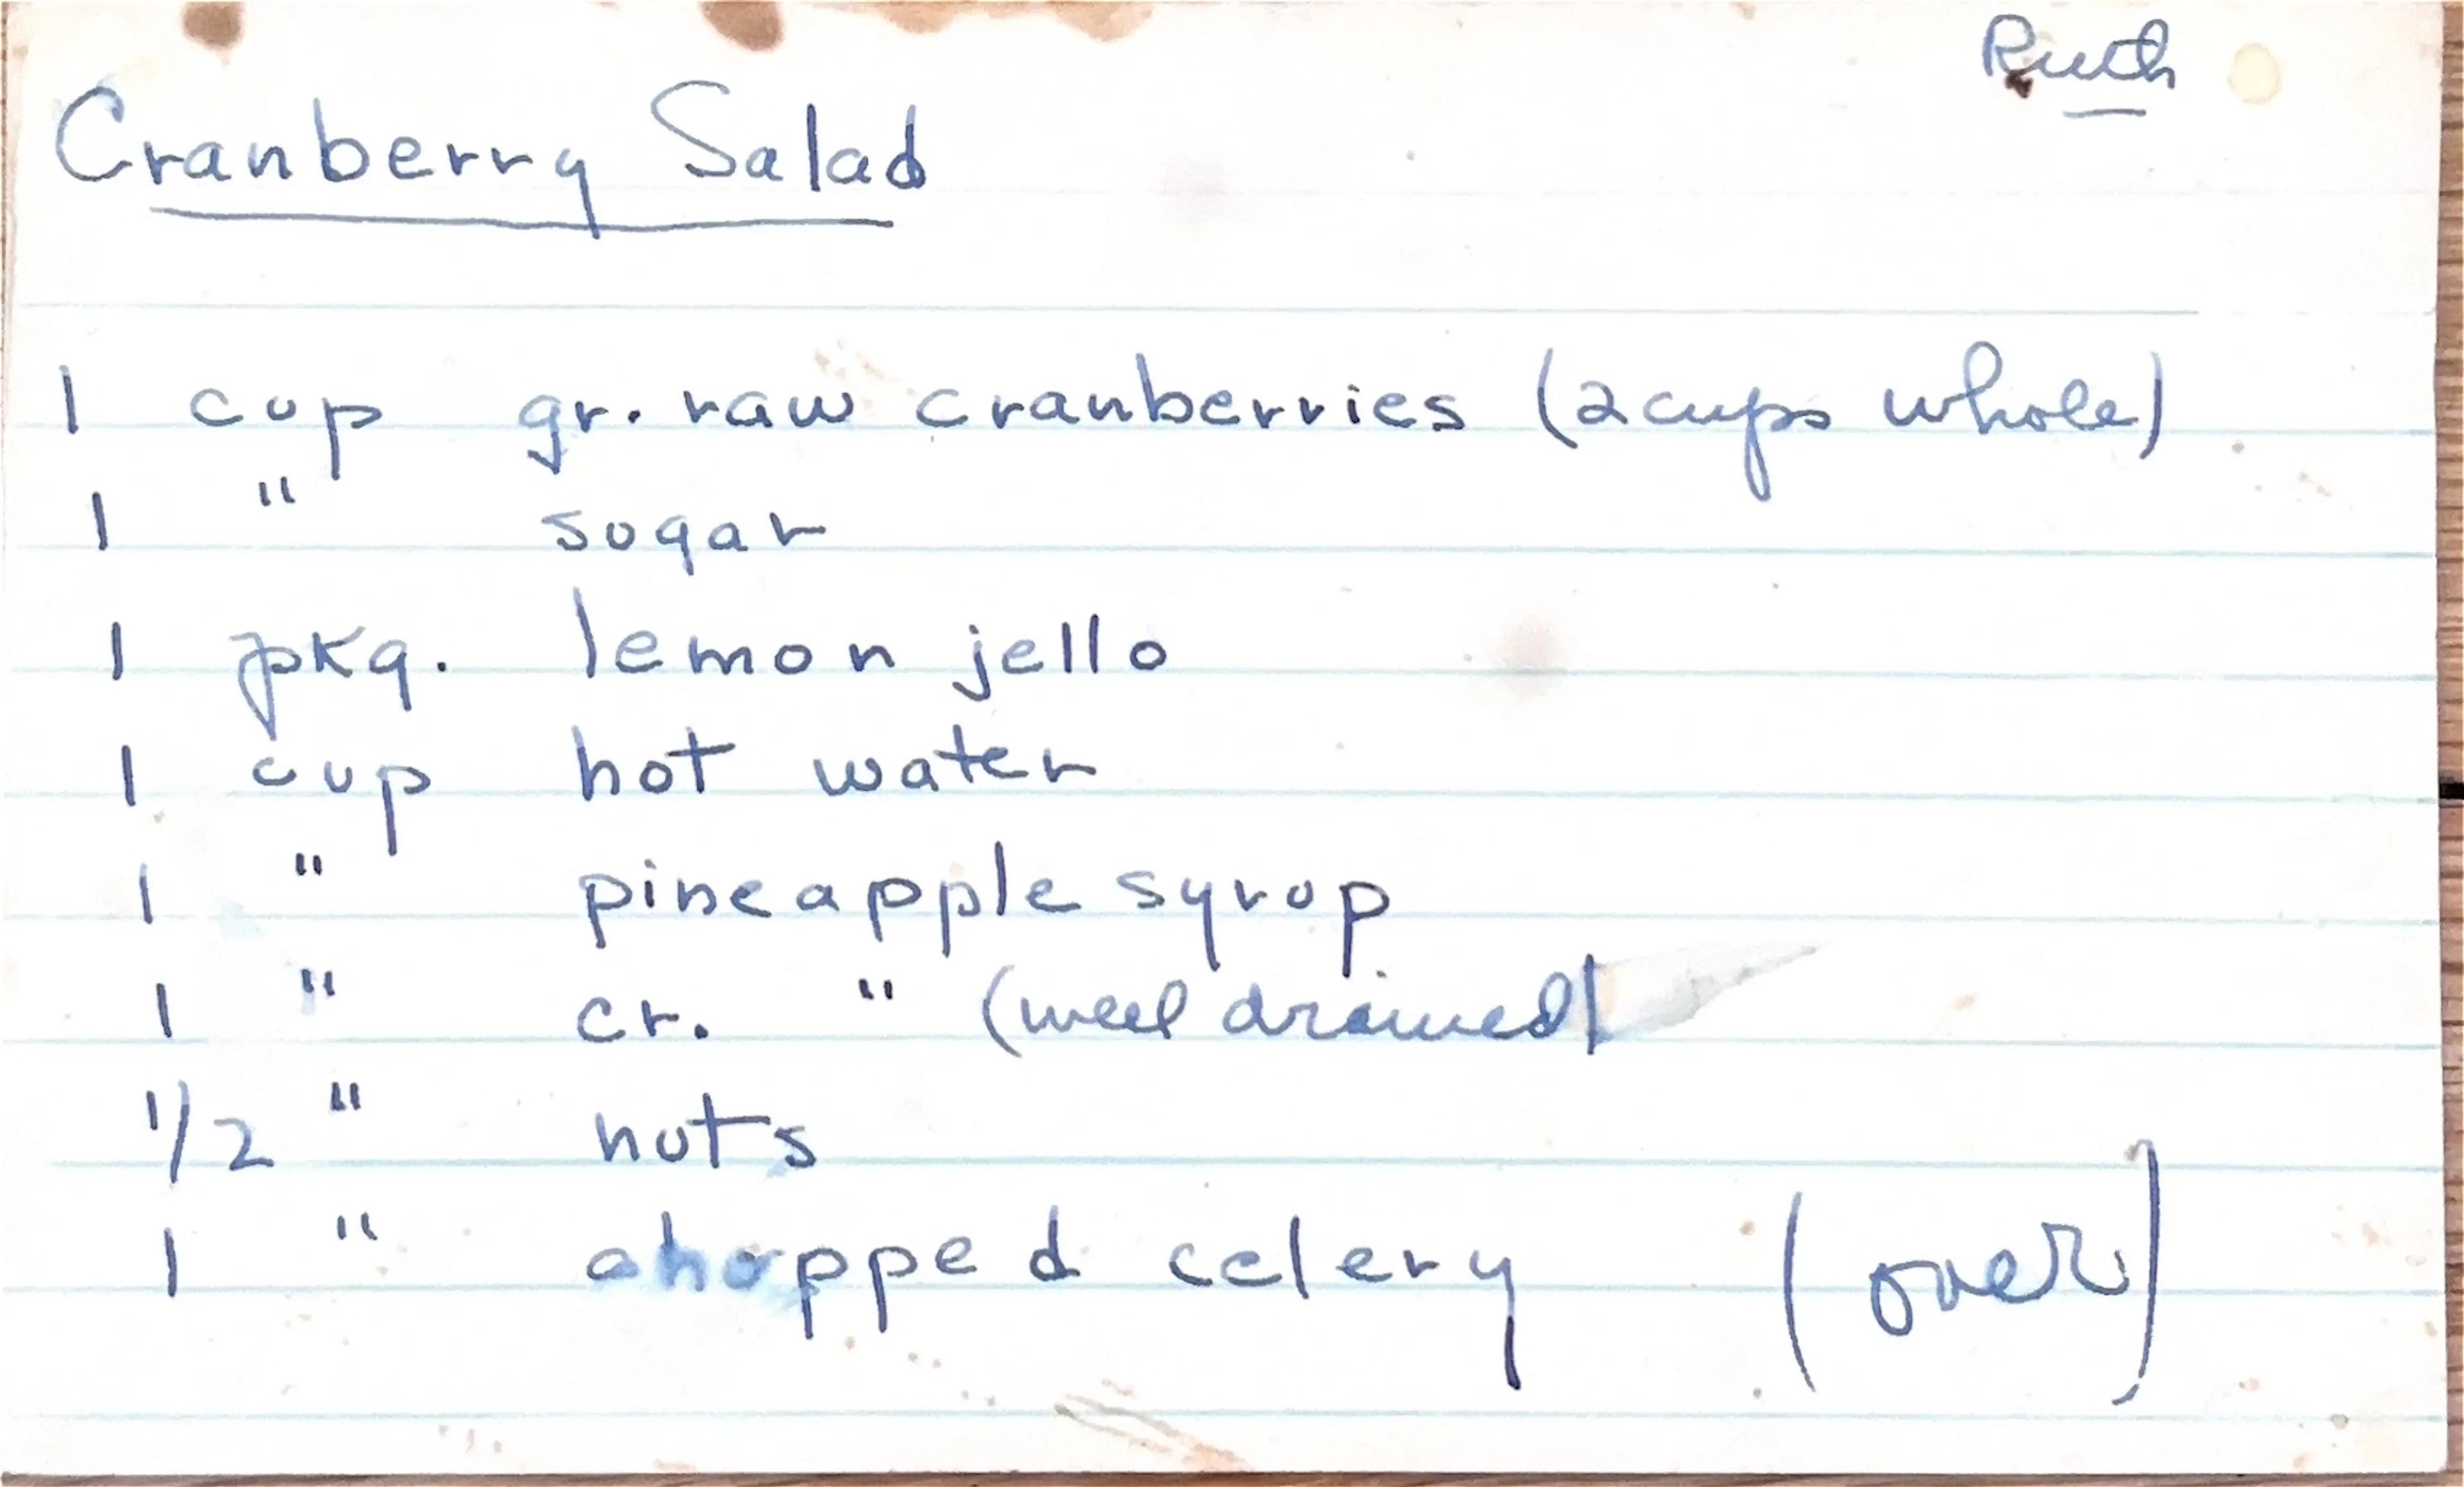 Ruth
Cranberry Salad
1 cup gr. raw cranberries (2 cups whole)
1 " sugar
1 pkg. lemon jello
1 cup hot water
1 " pineapple syrup
1 " cr. " (well drained)
1/2 " nuts
1 " chopped celery (over)